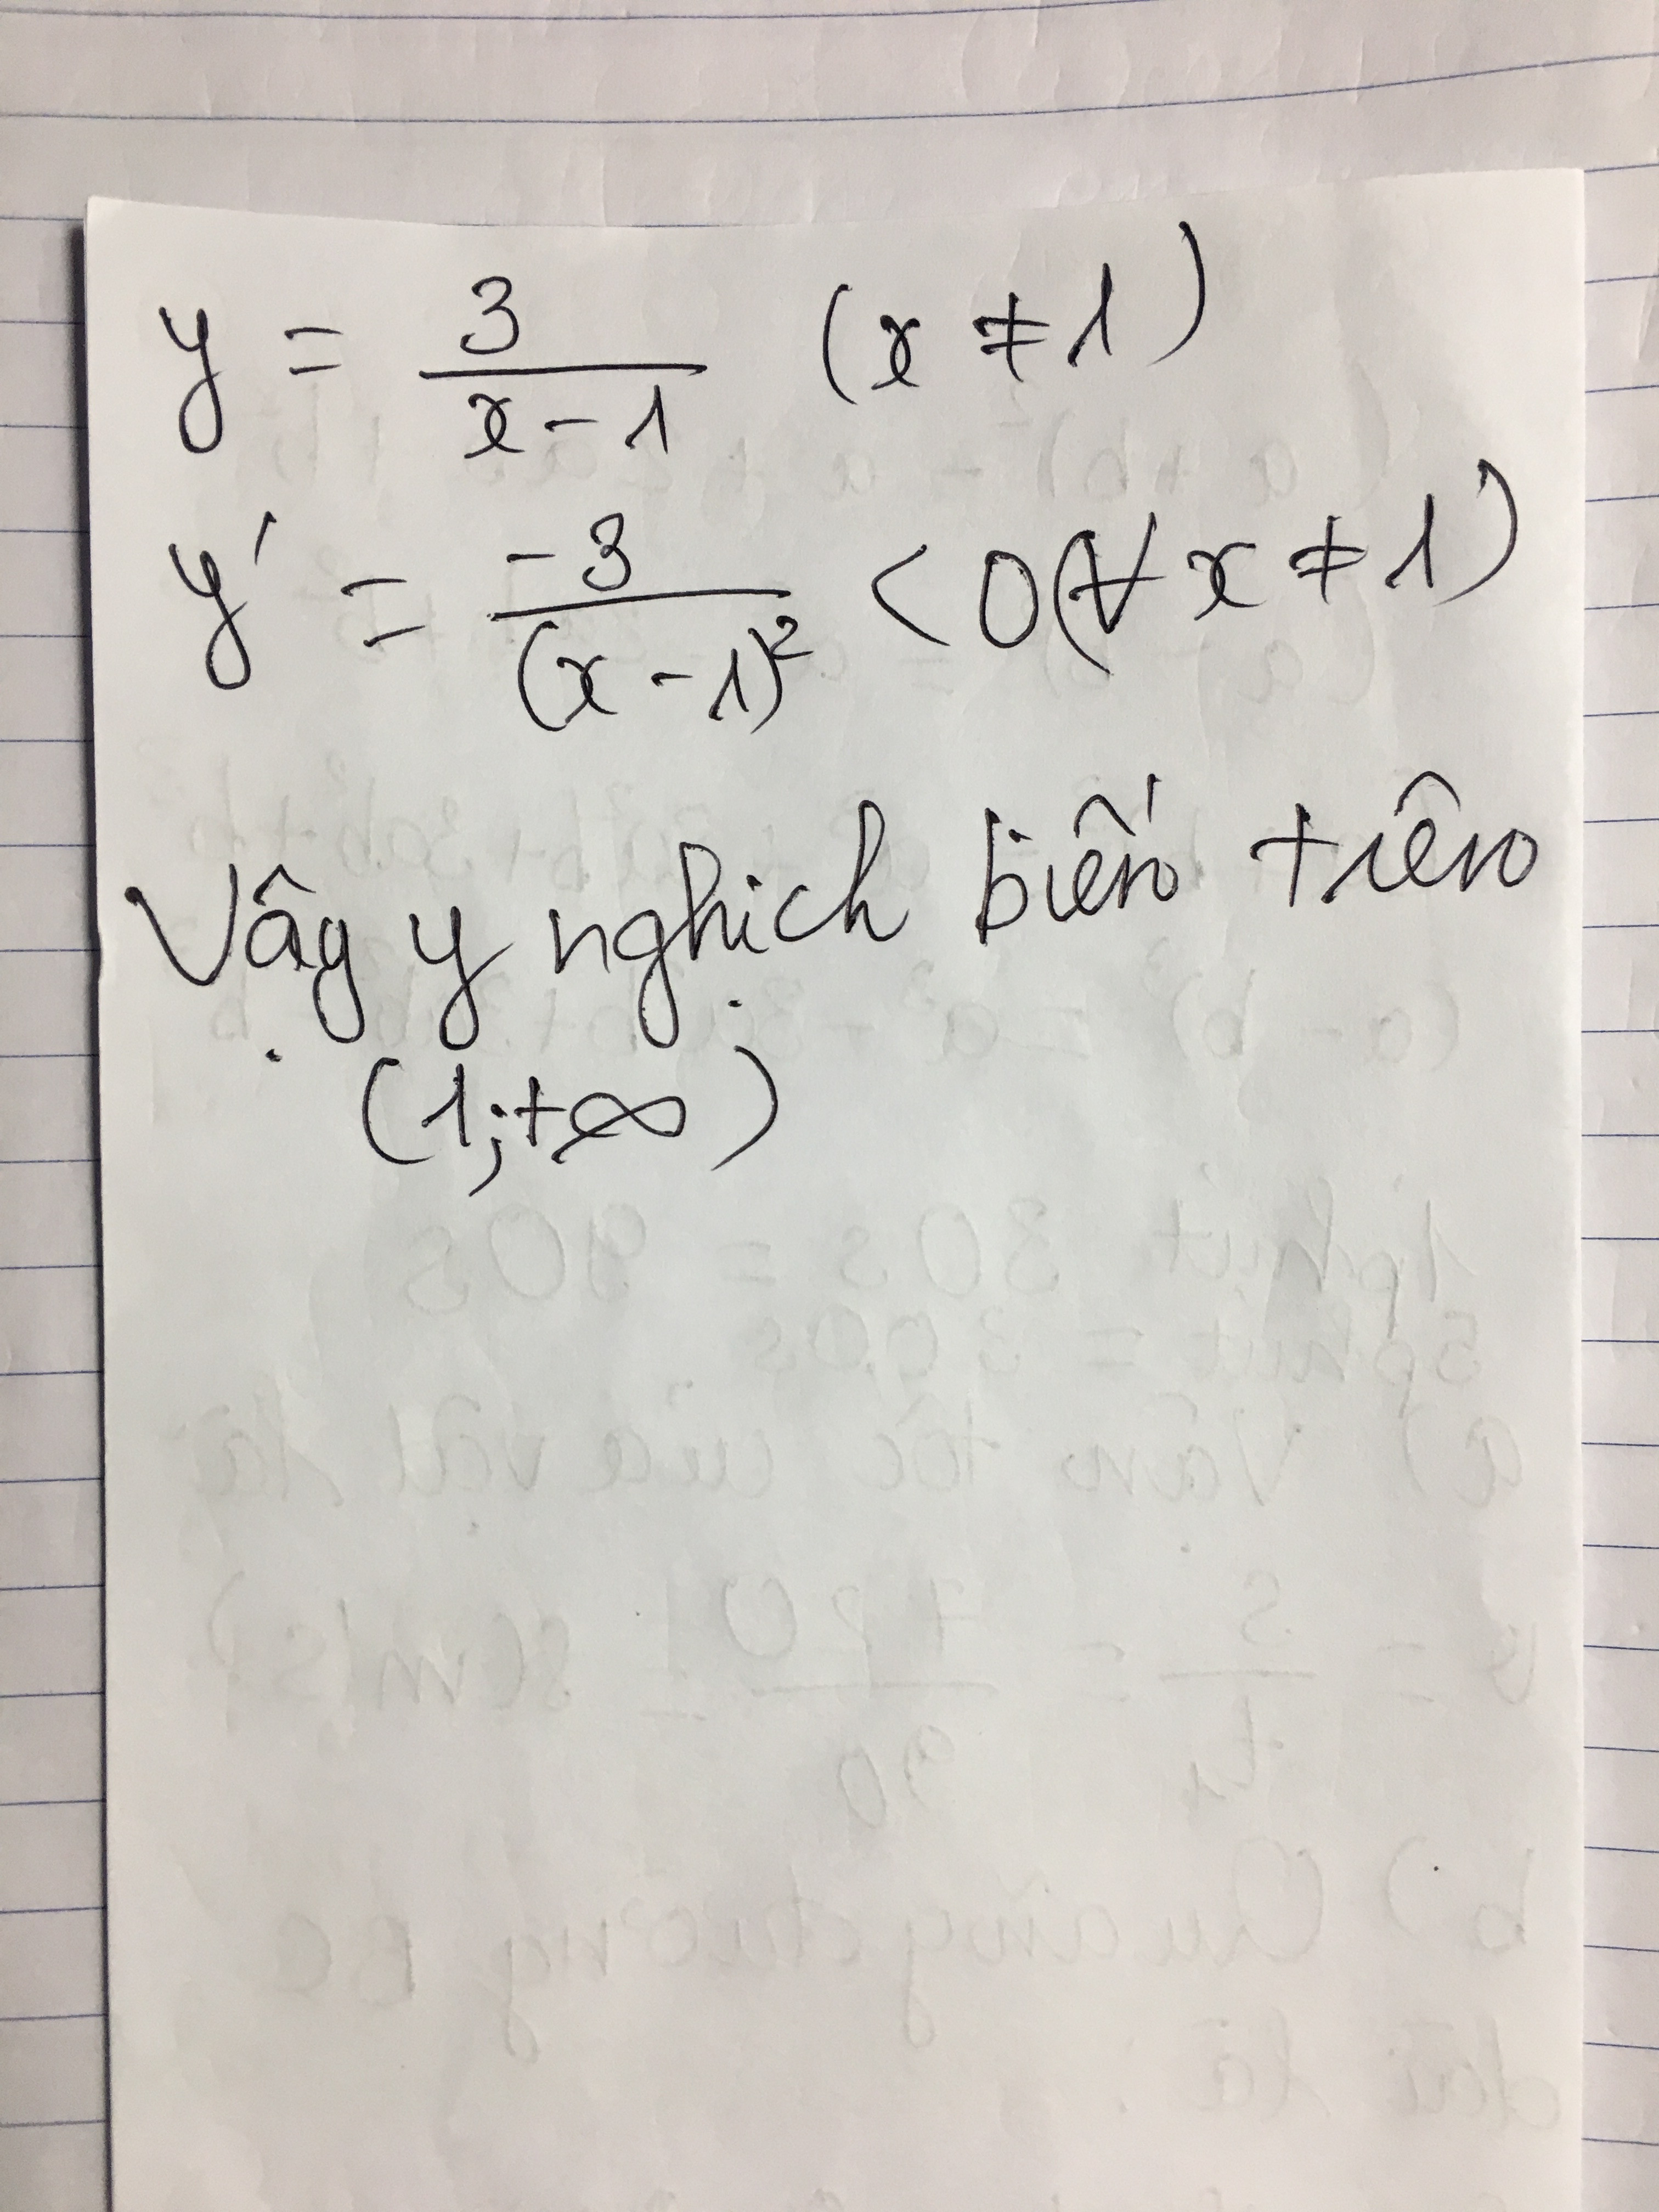 y = 3/(x-1) (x ≠ 1)
y' = -3/(x-1)² < 0 (∀ x ≠ 1)
Vậy y nghịch biến trên
(1;+∞)